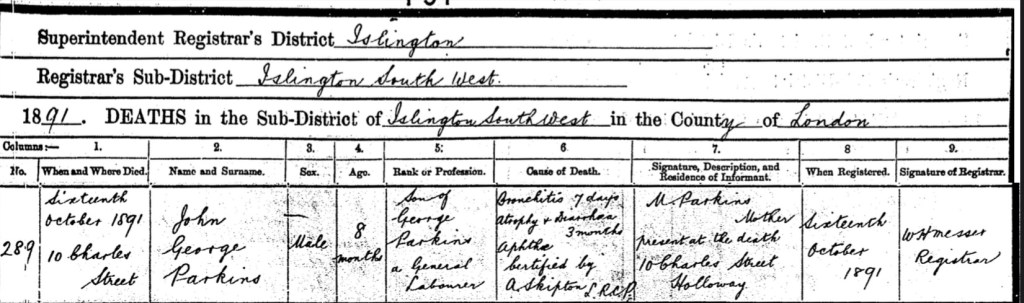 Superintendent Registrar's District Islington
Registrar's Sub-District Islington South West.
1891. DEATHS in the Sub-District of Islington South West in the County of London
Columns:— 1. 2. 3. 4. 5. 6 7. 8 9.
No. When and Where Died. Name and Surname. Sex. Age. Rank or Profession. Cause of Death. Signature, Description, and Residence of Informant. When Registered. Signature of Registrar.
289
Sixteenth
October 1891
10 Charles
Street
John
George
Parkins
—
Male
8
months
Son of
George
Parkins
a General
Labourer
Bronchitis 7 days
Atrophy & Diarrhœa
3 months
Aphthæ
Certified by
A Skipton L.R.C.P.
M. Parkins
Mother
present at the death
10 Charles Street
Holloway
Sixteenth
October
1891
W H Messer
Registrar